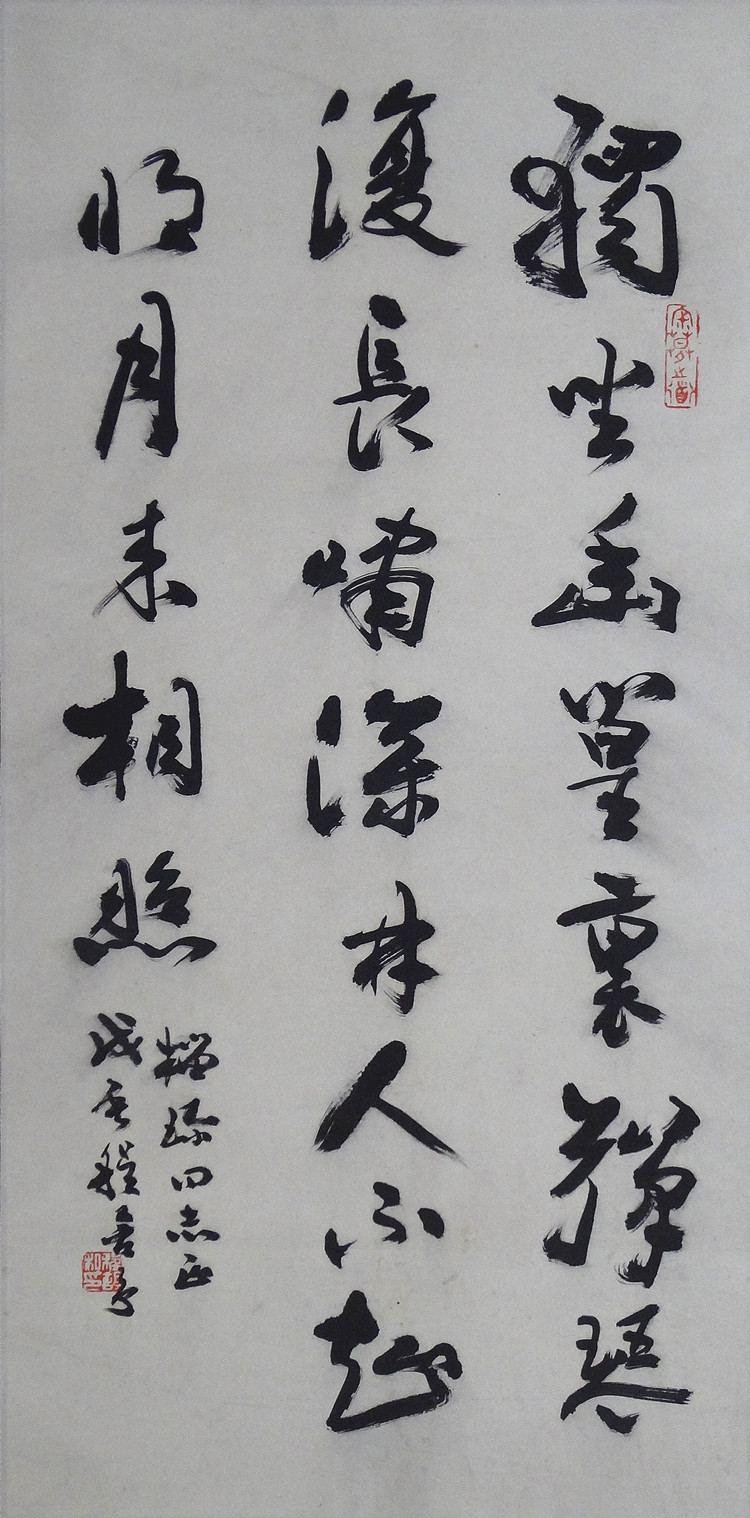 獨坐幽篁裏彈琴
復長嘯深林人不
明月來相照
同志正